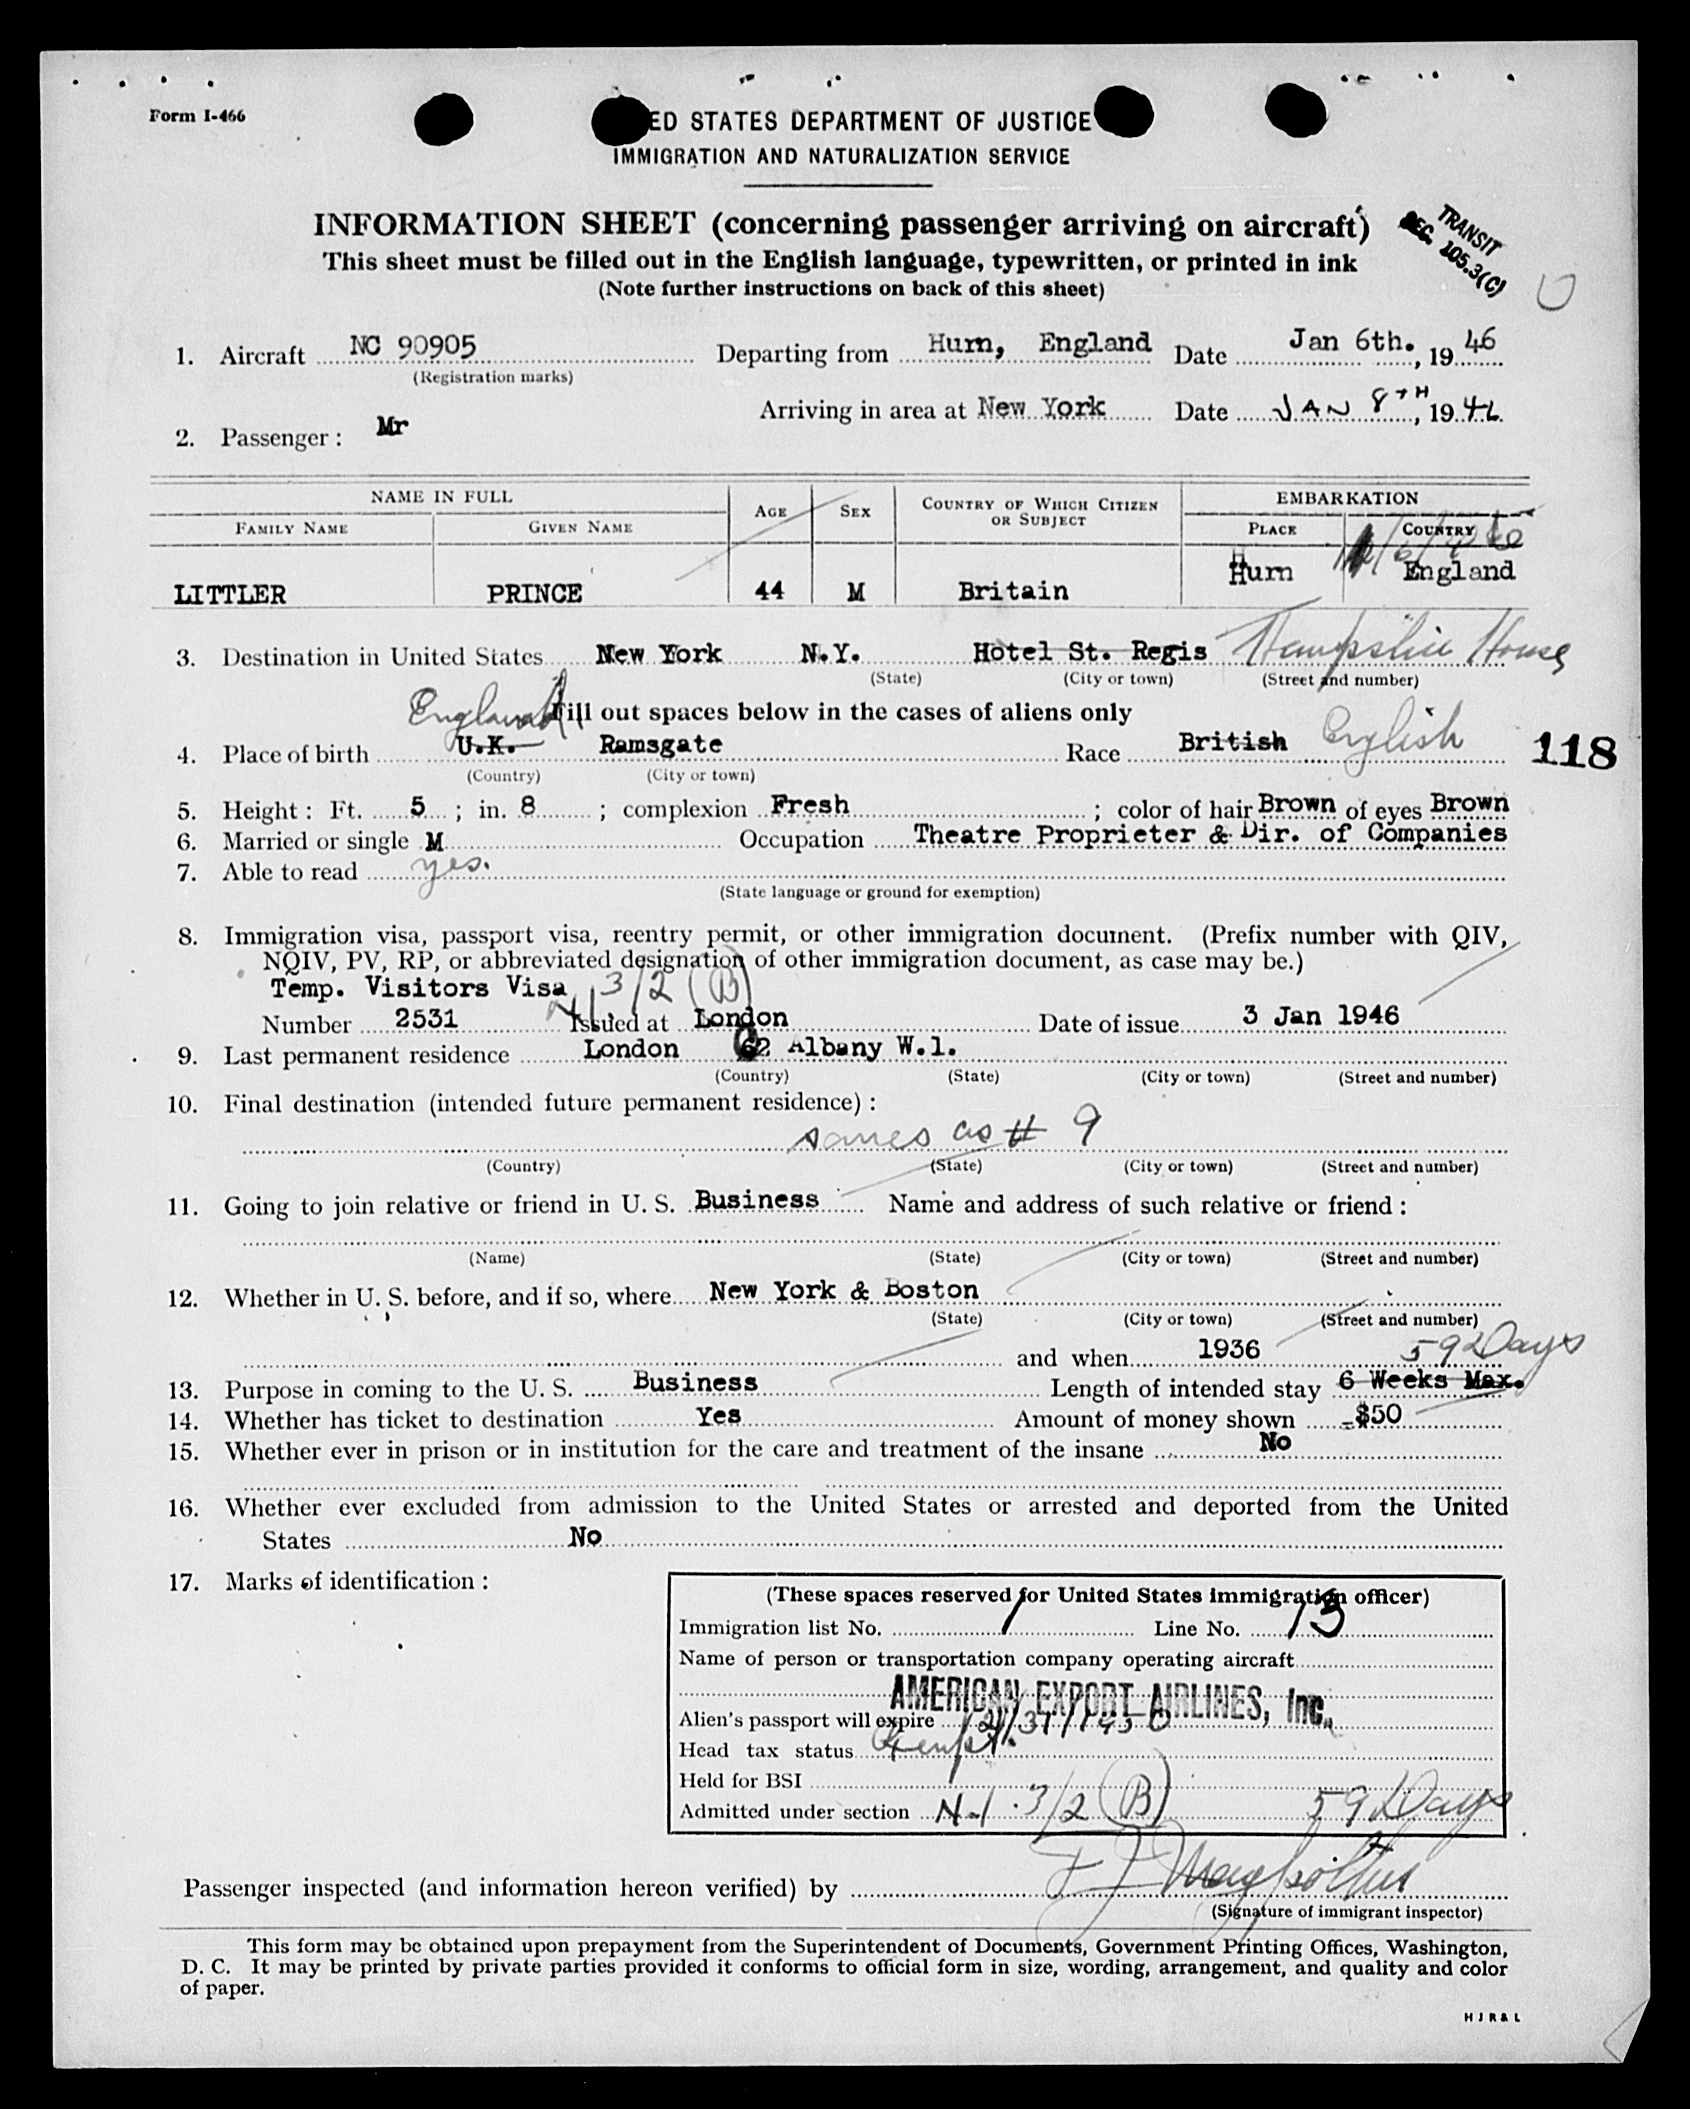 Form I-466
ED STATES DEPARTMENT OF JUSTICE
IMMIGRATION AND NATURALIZATION SERVICE
INFORMATION SHEET (concerning passenger arriving on aircraft)
TRANSIT
SEC. 105.3(C)
This sheet must be filled out in the English language, typewritten, or printed in ink
(Note further instructions on back of this sheet)
1. Aircraft NC 90905 Departing from Hurn, England Date Jan 6th., 19 46
(Registration marks)
Arriving in area at New York Date JAN 8TH, 19 46
2. Passenger: Mr
NAME IN FULL AGE SEX COUNTRY OF WHICH CITIZEN OR SUBJECT EMBARKATION
FAMILY NAME GIVEN NAME PLACE COUNTRY
LITTLER PRINCE 44 M Britain Hurn England
3. Destination in United States New York N.Y. Hotel St. Regis Hampshire House
(State) (City or town) (Street and number)
England Fill out spaces below in the cases of aliens only
4. Place of birth U.K. Ramsgate Race British English 118
(Country) (City or town)
5. Height: Ft. 5; in. 8; complexion Fresh; color of hair Brown of eyes Brown
6. Married or single M Occupation Theatre Proprieter & Dir. of Companies
7. Able to read yes.
(State language or ground for exemption)
8. Immigration visa, passport visa, reentry permit, or other immigration document. (Prefix number with QIV,
NQIV, PV, RP, or abbreviated designation of other immigration document, as case may be.)
Temp. Visitors Visa 3/2 (B)
Number 2531 Issued at London Date of issue 3 Jan 1946
9. Last permanent residence London 62 Albany W.1.
(Country) (State) (City or town) (Street and number)
10. Final destination (intended future permanent residence):
same as # 9
(Country) (State) (City or town) (Street and number)
11. Going to join relative or friend in U. S. Business Name and address of such relative or friend:
(Name) (State) (City or town) (Street and number)
12. Whether in U. S. before, and if so, where New York & Boston
(State) (City or town) (Street and number)
and when 1936 59 Days
13. Purpose in coming to the U. S. Business Length of intended stay 6 Weeks Max.
14. Whether has ticket to destination Yes Amount of money shown $50
15. Whether ever in prison or in institution for the care and treatment of the insane No
16. Whether ever excluded from admission to the United States or arrested and deported from the United
States No
17. Marks of identification:
(These spaces reserved for United States immigration officer)
Immigration list No. 1 Line No. 13
Name of person or transportation company operating aircraft
AMERICAN EXPORT AIRLINES, Inc.
Alien's passport will expire 12/31/1950
Head tax status Exempt.
Held for BSI
Admitted under section N-1 . 3/2 (B) 59 Days
Passenger inspected (and information hereon verified) by
(Signature of immigrant inspector)
This form may be obtained upon prepayment from the Superintendent of Documents, Government Printing Offices, Washington,
D. C. It may be printed by private parties provided it conforms to official form in size, wording, arrangement, and quality and color
of paper.
H J R & L